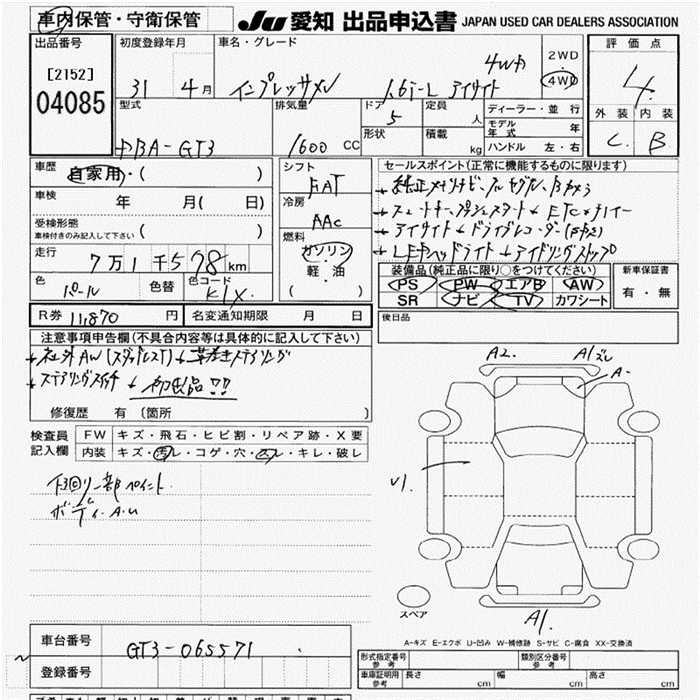 車内保管・守衛保管
JU 愛知 出品申込書 JAPAN USED CAR DEALERS ASSOCIATION
出品番号
[2152]
04085
初度登録年月
31 年 4 月
車名・グレード
インプレッサ 1.6i-L アイサイト 4WD
2WD
4WD
評価点
4
外装 内装
C B
型式
DBA-GT3
排気量
1600 CC
ドア
5
形状
定員
人
積載
kg
ディーラー・並行
モデル年式 年
ハンドル 左・右
車歴
自家用・( )
車検
年 月( 日)
受検形態
車検付きのみ記入して下さい
( )
走行
7万1千578km
色
パール
色替
色コード
K1X
シフト
FAT
冷房
AAC
燃料
ガソリン・軽・油
( )
セールスポイント(正常に機能するものに限ります)
純正メモリナビ・フルセグTV・Bカメラ
スマートキー・プッシュスタート ETC
アイサイト ドライブレコーダー
LEDヘッドライト アイドリングストップ
装備品(純正品に限り○をつけてください)
PS PW エアB AW
SR ナビ TV カワシート
新車保証書
有・無
R券 11,870 円
名変通知期限 月 日
後日品
注意事項申告欄(不具合内容等は具体的に記入して下さい)
社外AW(スタッドレス) 革巻きステアリング
ステアリングスイッチ
修復歴 有 (箇所 )
検査員記入欄
FW キズ・飛石・ヒビ割・リペア跡・X要
内装 キズ・汚レ・コゲ・穴・凹レ・キレ・破レ
下回り一部ペイント
ボディ A.U
A2. A1ズレ
A-
U1.
スペア
A1.
A-キズ E-エクボ U-凹み W-補修跡 S-サビ C-腐食 XX-交換済
車台番号
GT3-065571
登録番号
形式指定番号 参考
類別区分番号 参考
車庫証明用 参考 長さ cm 幅 cm 高さ cm